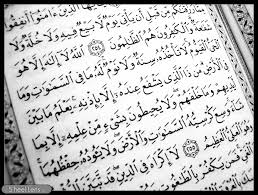 ٱلَّذِينَ ءَامَنُوٓا۟ أَنفِقُوا۟
رَزَقْنَٰكُم مِّن قَبْلِ أَن يَأْتِىَ يَوْمٌ لَّا بَيْعٌ فِيهِ وَلَا خُلَّةٌ وَلَا
شَفَٰعَةٌ وَٱلْكَٰفِرُونَ هُمُ ٱلظَّٰلِمُونَ ٢٥٤ ٱللَّهُ لَآ إِلَٰهَ إِلَّا هُوَ
ٱلْحَىُّ ٱلْقَيُّومُ لَا تَأْخُذُهُۥ سِنَةٌ وَلَا نَوْمٌ لَّهُۥ مَا فِى ٱلسَّمَٰوَٰتِ وَمَا
فِى ٱلْأَرْضِ مَن ذَا ٱلَّذِى يَشْفَعُ عِندَهُۥٓ إِلَّا بِإِذْنِهِۦ يَعْلَمُ مَا بَيْنَ
أَيْدِيهِمْ وَمَا خَلْفَهُمْ وَلَا يُحِيطُونَ بِشَىْءٍ مِّنْ عِلْمِهِۦٓ إِلَّا بِمَا
شَآءَ وَسِعَ كُرْسِيُّهُ ٱلسَّمَٰوَٰتِ وَٱلْأَرْضَ وَلَا يَـُٔودُهُۥ حِفْظُهُمَا
وَهُوَ ٱلْعَلِىُّ ٱلْعَظِيمُ ٢٥٥ لَآ إِكْرَاهَ فِى ٱلدِّينِ
ٱلْغَىِّ فَمَن يَكْفُرْ بِٱلطَّٰغُوتِ